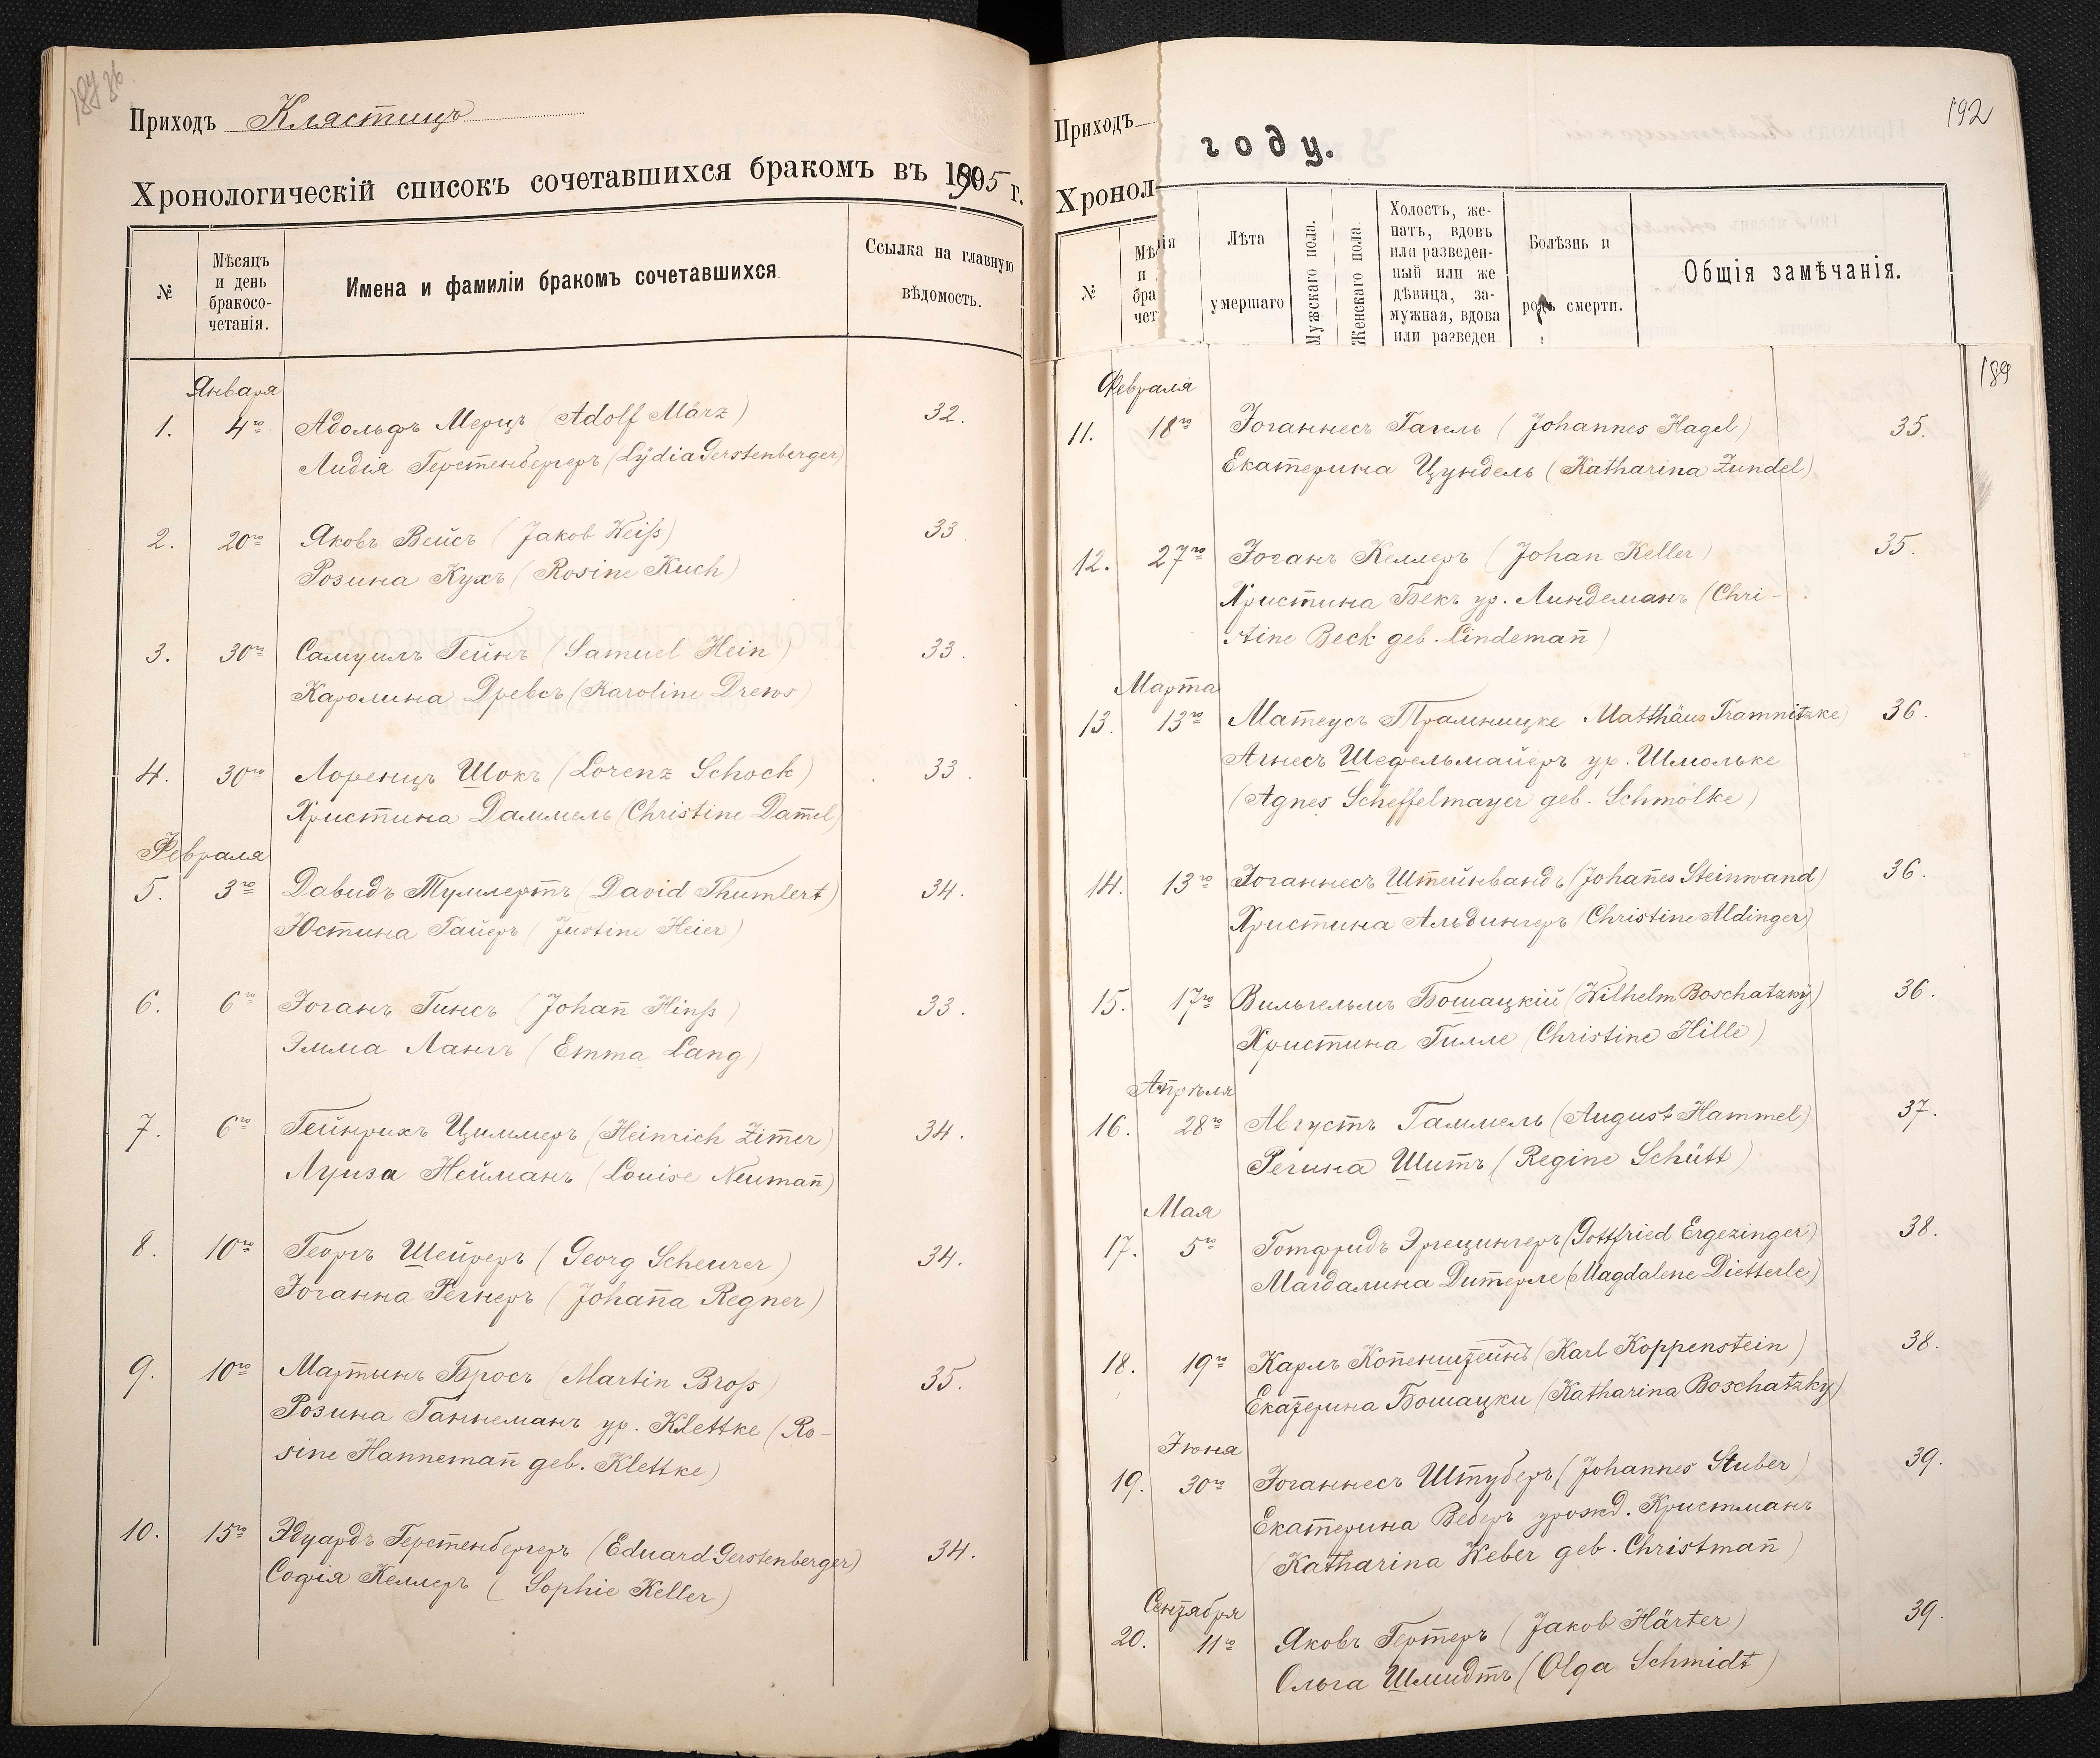 Приходъ Клястицъ
Хронологическій списокъ сочетавшихся бракомъ въ 1905 г.
№
Мѣсяцъ
и день
бракосо-
четанія.
Имена и фамиліи бракомъ сочетавшихся
Ссылка на главную
вѣдомость.
Января
1. 4го Адольфъ Мерцъ (Adolf März) 32.
Лидія Герстенбергеръ (Lÿdia Gerstenberger)
2. 20го Яковъ Вейсъ (Jakob Weiß) 33
Розина Кухъ (Rosine Kuch)
3. 30го Самуилъ Гейнъ (Samuel Hein) 33.
Каролина Древсъ (Karoline Drews)
4. 30го Лоренцъ Шокъ (Lorenz Schock) 33
Христина Даммель (Christine Dam̄el)
Февраля
5. 3го Давидъ Тумлертъ (David Thumlert) 34.
Юстина Гайеръ (Justine Heier)
6. 6го Іоганъ Гинсъ (Johan̄ Hinß) 33.
Эмма Лангъ (Emma Lang)
7. 6го Гейнрихъ Циммеръ (Heinrich Zim̄er) 34.
Луиза Нейманъ (Louise Neuman̄)
8. 10го Георгъ Шейреръ (Georg Scheurer) 34.
Іоганна Регнеръ (Johan̄a Regner)
9. 10го Мартынъ Бросъ (Martin Broß) 35.
Розина Ганнеманъ ур. Klettke (Ro-
sine Hanneman̄ geb. Klettke)
10. 15го Эдуардъ Герстенбергеръ (Eduard Gerstenberger) 34.
Софія Келлеръ (Sophie Keller)
Приходъ
году.
192
Хронол
№
Мѣ
и
бра
чет
ія
Лѣта
умершаго
Мужскаго пола.
Женскаго пола
Холостъ, же-
натъ, вдовъ
или разведен-
ный или же
дѣвица, за-
мужная, вдова
или разведен
Болѣзнь и
родъ смерти.
Общія замѣчанія.
189
Февраля
11. 18го Іоганнесъ Гагель (Johannes Hagel) 35.
Екатерина Цундель (Katharina Zundel)
12. 27го Іоганъ Келлеръ (Johan Keller) 35.
Христина Бекъ ур. Линдеманъ (Chri-
stine Beck geb. Lindeman̄)
Марта
13. 13го Матеусъ Трамницке Matthäus Tramnitzke) 36.
Агнесъ Шефельмайеръ ур. Шмольке
(Agnes Scheffelmayer geb. Schmolke)
14. 13го Іоганнесъ Штейнвандъ (Johan̄es Steinwand) 36.
Христина Альдингеръ (Christine Aldinger)
15. 17го Вильгельмъ Бошацкій (Wilhelm Boschatzkÿ) 36.
Христина Гилле (Christine Hille)
Апрѣля
16. 28го Августъ Гаммель (August Hammel) 37.
Регина Шитъ (Regine Schütt)
Мая
17. 5го Готфридъ Эргецингеръ (Gottfried Ergezinger) 38.
Магдалина Дитерле (Magdalene Dietterle)
18. 19го Карлъ Копенштейнъ (Karl Koppenstein) 38.
Екатерина Бошацки (Katharina Boschatzky)
Іюня
19. 30го Іоганнесъ Штуберъ (Johannes Stuber) 39.
Екатерина Веберъ урожд. Кристманъ
(Katharina Weber geb. Christman̄)
Сентября
20. 11го Яковъ Гертеръ (Jakob Härter) 39.
Ольга Шмидтъ (Olga Schmidt)